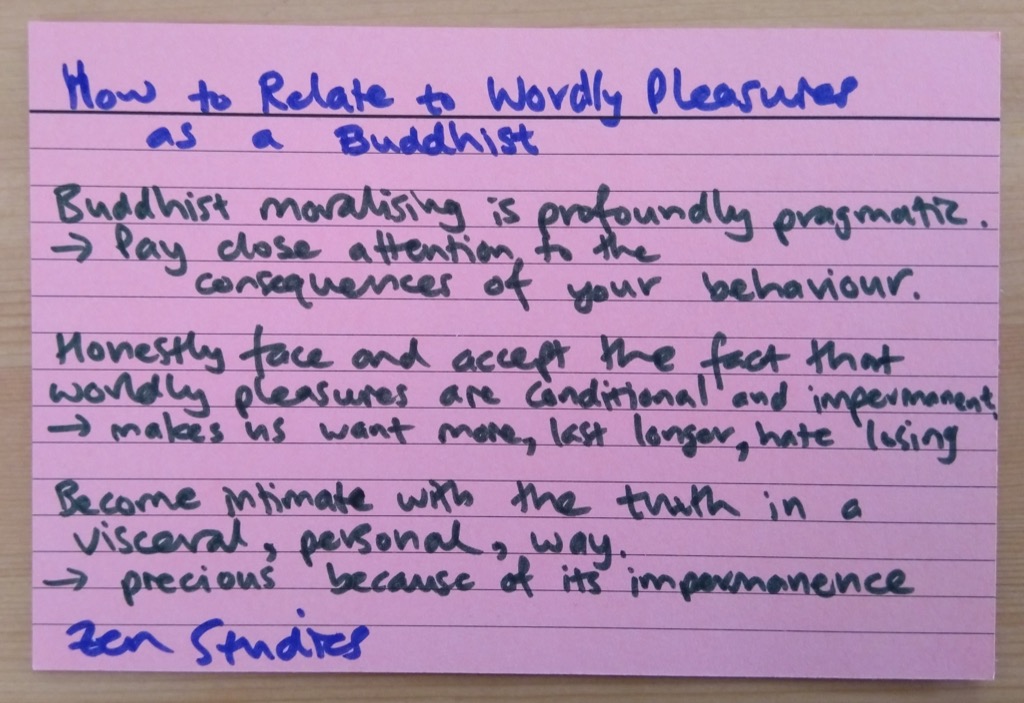 How to Relate to Wordly Pleasures
as a Buddhist
Buddhist moralising is profoundly pragmatic.
→ Pay close attention to the
consequences of your behaviour.
Honestly face and accept the fact that
worldly pleasures are conditional and impermanent.
→ makes us want more, last longer, hate losing
Become intimate with the truth in a
visceral, personal, way.
→ precious because of its impermanence
Zen Studies